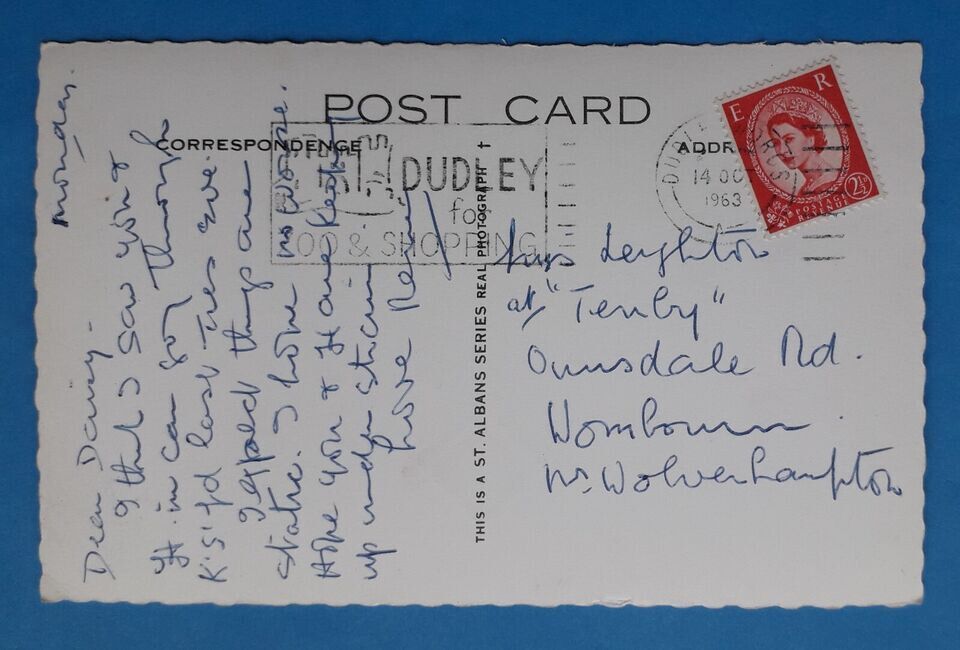 POST CARD
CORRESPONDENCE
ADDR
DUDLEY
for
ZOO & SHOPPING
DUDLEY
14 OC
1963
E R
2½
POSTAGE
REVENUE
THIS IS A ST. ALBANS SERIES REAL PHOTOGRAPH
Monday.
Dear Daisy-
I think I saw you &
H. in car going through
K.S'fd last Tues eve.
I expect things are
static. I hope no worse.
Hope you & H are keeping
up under strain.
Love
Leighton
at "Tenby"
Ounsdale Rd.
Wombourn
Nr. Wolverhampton